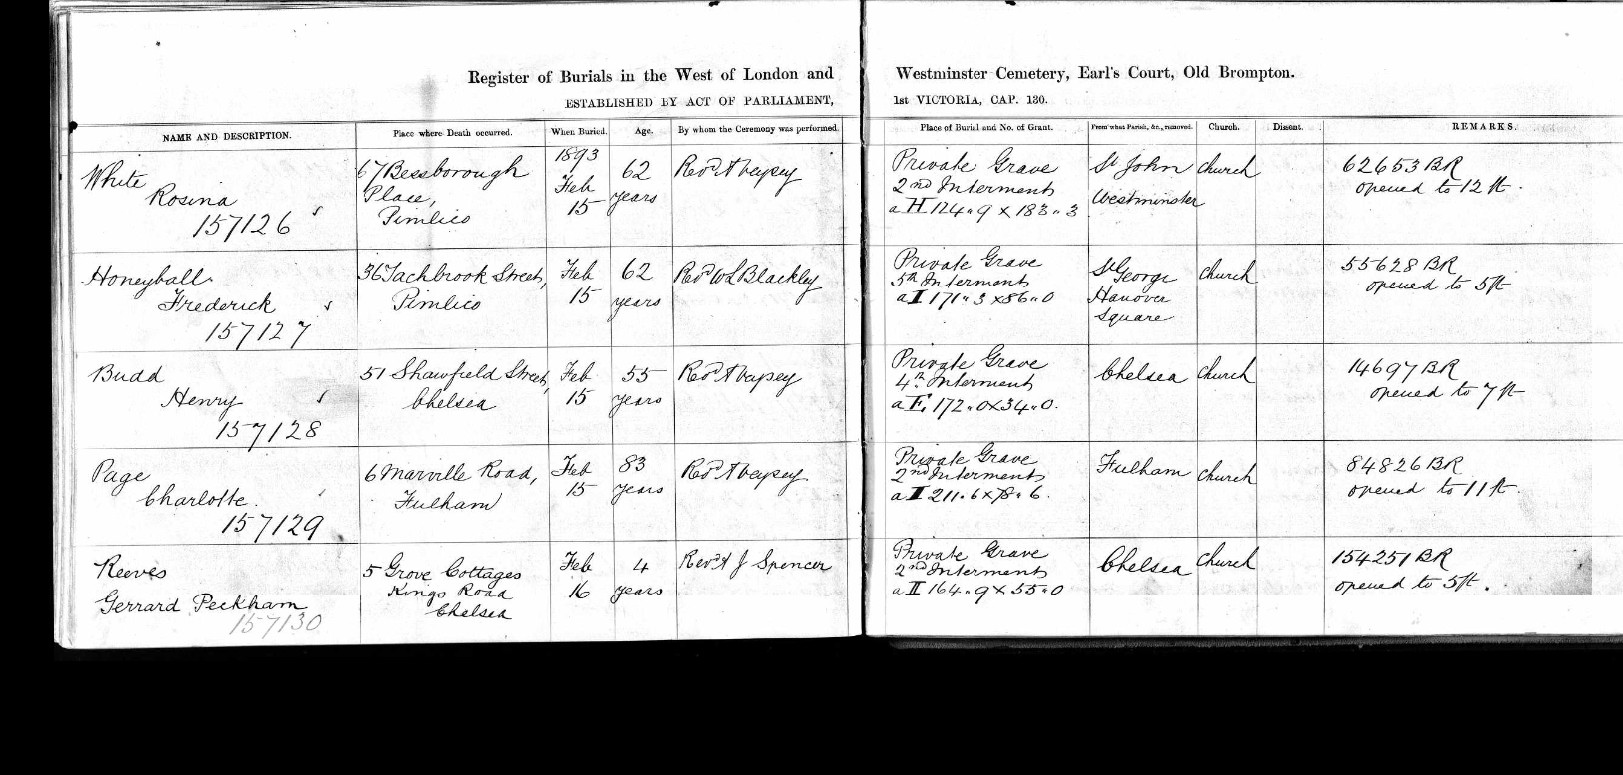 Register of Burials in the West of London and Westminster Cemetery, Earl's Court, Old Brompton.
ESTABLISHED BY ACT OF PARLIAMENT, 1st VICTORIA, CAP. 130.
NAME AND DESCRIPTION. Place where Death occurred. When Buried. Age. By whom the Ceremony was performed. Place of Burial and No. of Grant. From what Parish, &c., removed. Church. Dissent. REMARKS.
White
Rosina
157126
67 Bessborough
Place,
Pimlico
1893
Feb
15
62
years
Revd A Veysey
Private Grave
2nd Interment
a H 124.9 x 183.3
St John
Westminster
Church
62653 BR
opened to 12 ft.
Honeyball
Frederick
157127
36 Tachbrook Street,
Pimlico
Feb
15
62
years
Revd W L Blackley
Private Grave
5th Interment
a I 171.3 x 86.0
St George
Hanover
Square
Church
55628 BR
opened to 5 ft
Budd
Henry
157128
51 Shawfield Street,
Chelsea
Feb
15
55
years
Revd A Veysey
Private Grave
4th Interment
a E, 172.0 x 34.0.
Chelsea
Church
14697 BR
opened to 7 ft
Page
Charlotte.
157129
6 Marville Road,
Fulham
Feb
15
83
years
Revd A Veysey
Private Grave
2nd Interment
a I 211.6 x 78.6.
Fulham
Church
84826 BR
opened to 11 ft.
Reeves
Gerrard Peckham
157130
5 Grove Cottages
Kings Road
Chelsea
Feb
16
4
years
Revd A J Spencer
Private Grave
2nd Interment
a II 164.9 x 55.0
Chelsea
Church
154251 BR
opened to 5 ft.